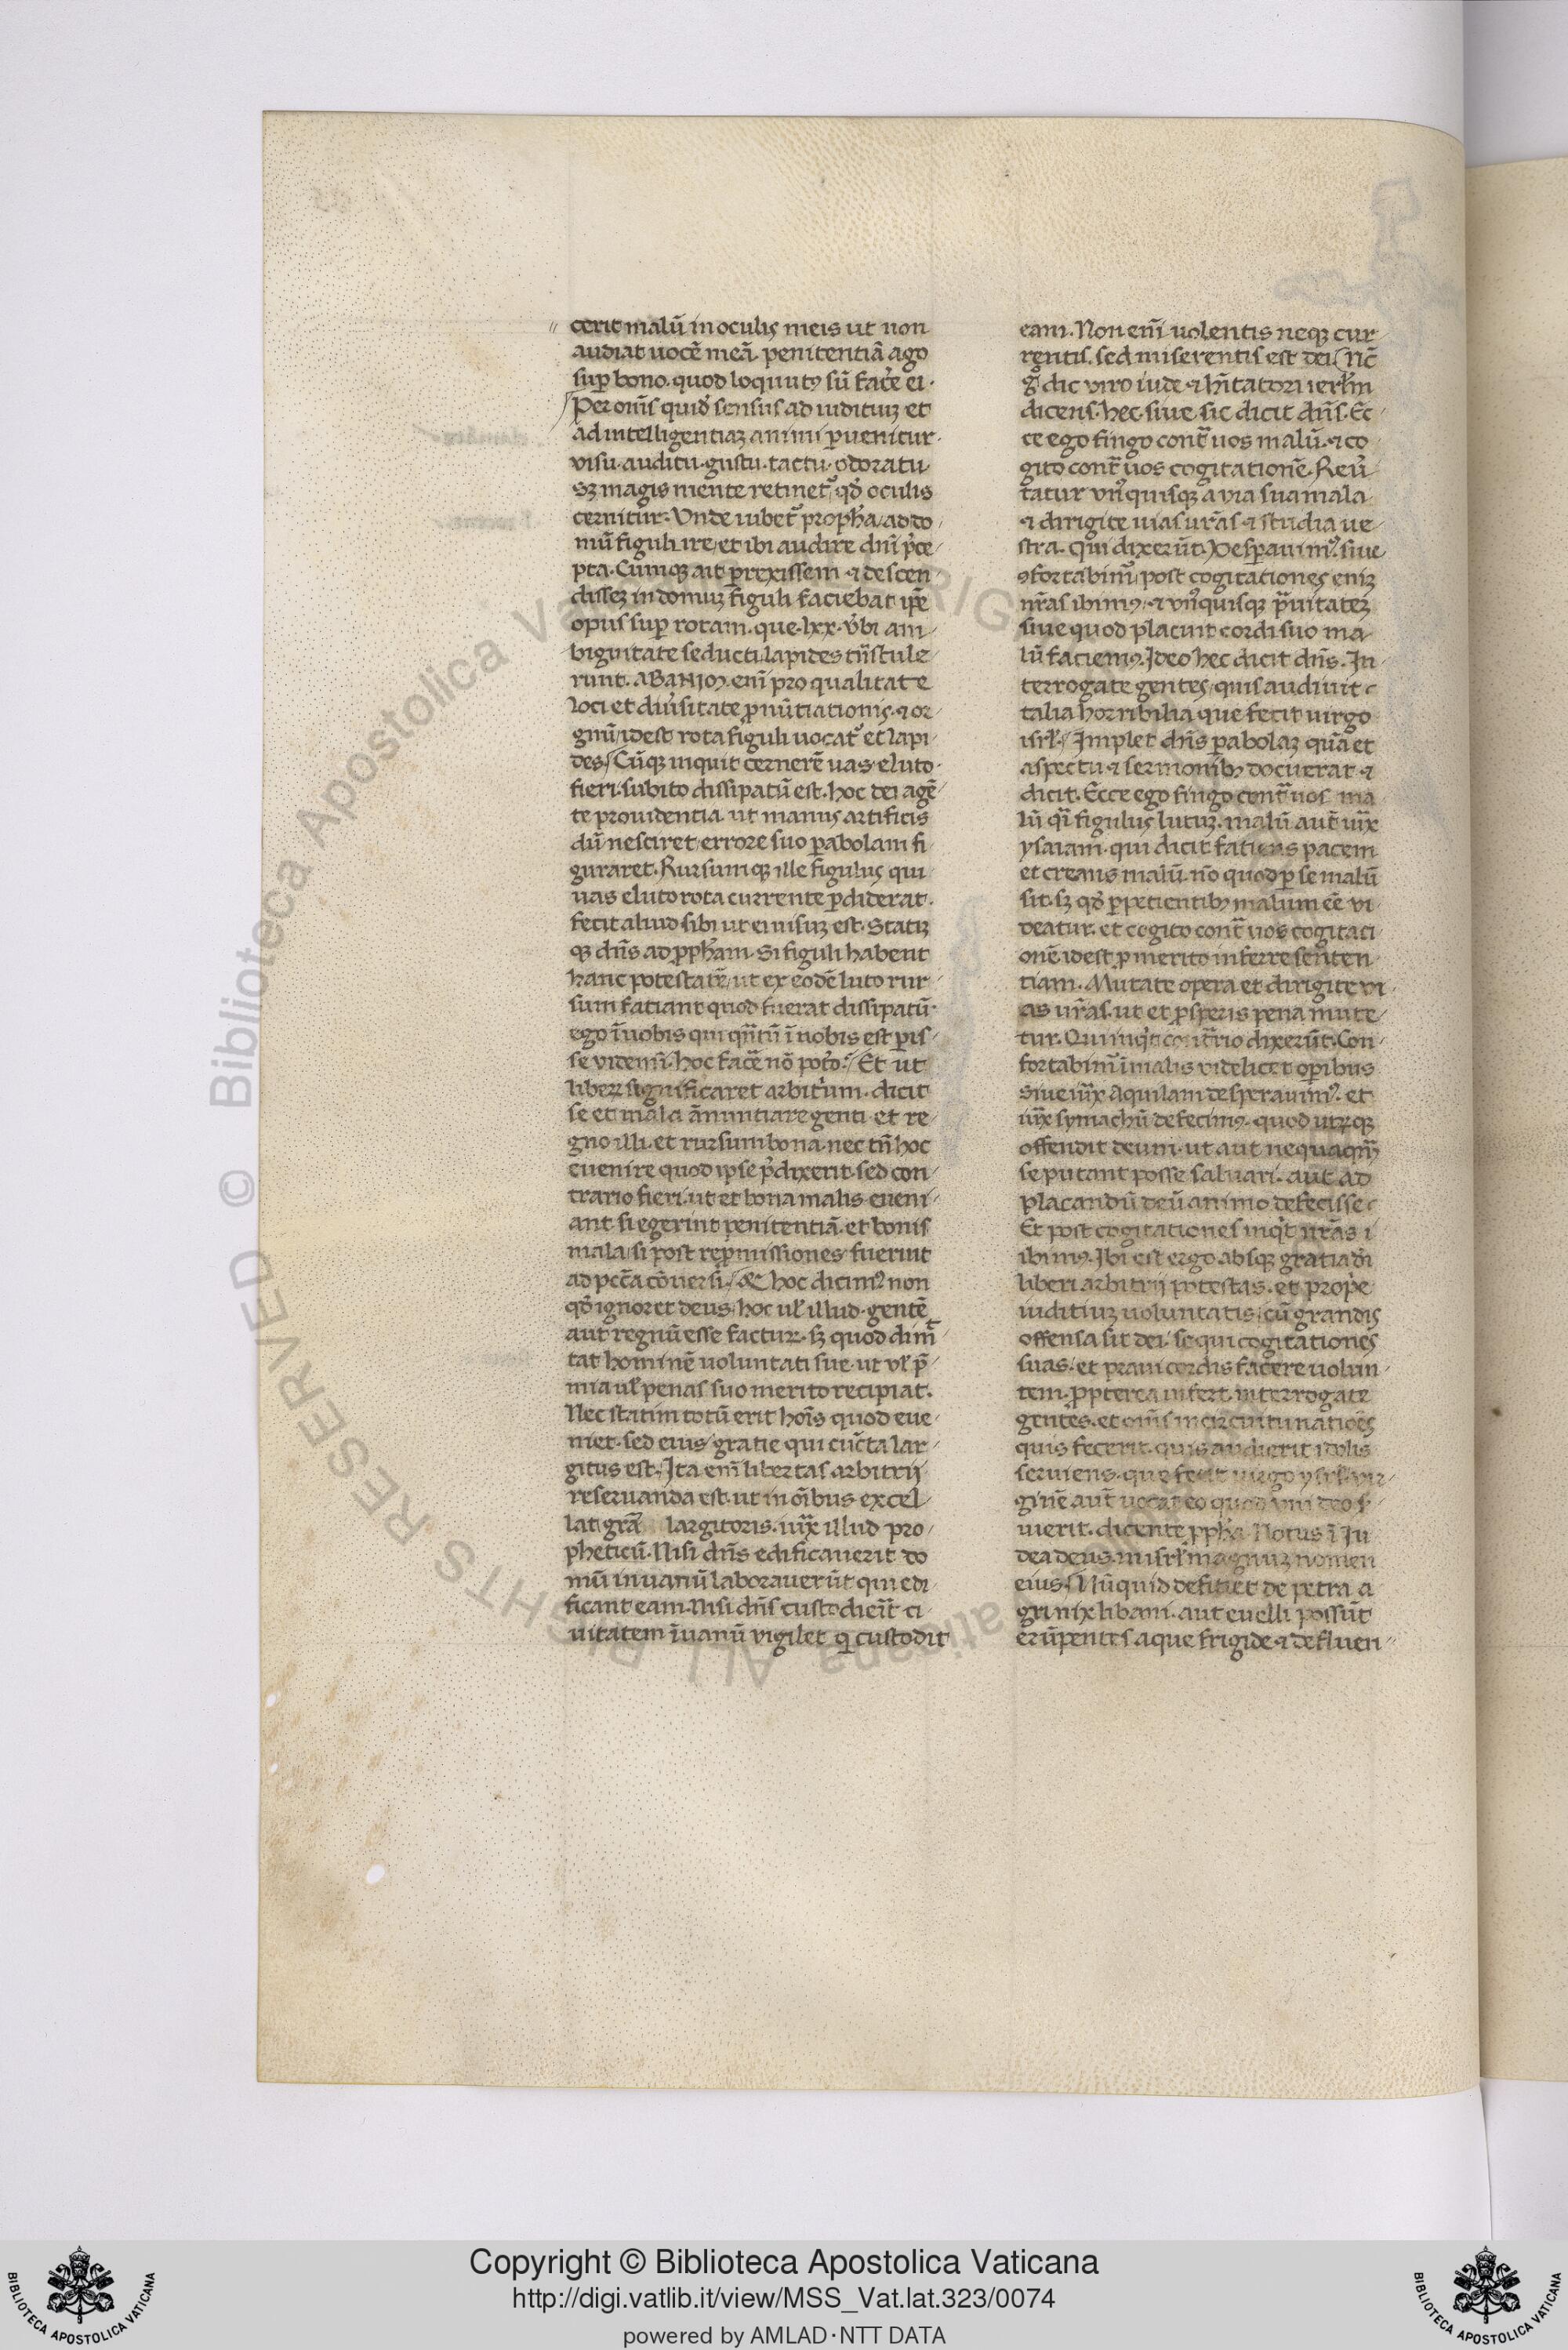 cerit malũ in oculis meis ut non
audiat uocẽ meã. penitentiã ago
suꝑ bono. quod loquutꝰ sũ face᷑ ei.
Per om̃s quidẽ sensus ad iuditiuꝫ et
ad intelligentiaꝫ animi ꝑuenitur.
visu. auditu. gustu. tactu. odoratu.
Sꝫ magis mente retinet᷑ qđ oculis
cernitur. Vnde iubet᷑ propha᷑ ad do
mũ figuli ire, et ibi audire dni᷑ p̃ce
pta. Cumqꝫ ait ꝑrexissem ⁊ descen
disseꝫ in domuꝫ figuli faciebat ip̃e
opus suꝑ rotam. que. lxx. v̓bi am
biguitate seducti lapides tñstule
runt. ABANIM. eni᷑ pro qualitate
loci et diu̓sitate ꝓnũtiationis. ⁊ or
ganũ, idest rota figuli uocat᷑ et lapi
des. Cũqꝫ inquit cernerẽ uas e luto.
fieri. subito dissipatũ est. hoc dei agẽ
te prouidentia. ut manus artificis
dũ nesciret errore suo ꝑabolam fi
guraret. Rursumqꝫ ille figulus qui
uas e luto rota currente ꝑdiderat.
fecit aliud sibi ut ei uisuꝫ est. Statiꝫ
qꝫ dñs ad ꝓpham. Si figuli habent
hanc potestatẽ, ut ex eodẽ luto rur
sum fatiant quod fuerat dissipatũ.
ego ĩ uobis qui qñtũ ĩ uobis est ꝑis
se videmĩ. hoc face᷑ nõ pote᷑o. Et ut
liberꝝ significaret arbitrium. dicit
se et mala ãnuntiare genti et re
gno illi. et rursum bona. nec tñ hoc
euenire quod ipse p̃dixerit. sed con
trario fieri. ut et bona malis eueni
ant si egerint penitentiã. et bonis
mala, si post reꝓmissiones fuerint
ad pcc̃a cõuersi. & hoc dicimꝰ non
qđ ignoret deus, hoc ul̓ illud. gentẽ
aut regnũ esse facturꝝ. sꝫ quod dim̃
tat hominẽ uoluntati sue. ut vl̓ p̃
mia ul̓ penas suo merito recipiat.
Nec statim totũ erit hoĩs quod eue
niet. sed eius gratie qui cũcta lar
gitus est. Ita eni᷑ libertas arbitrij
reseruanda est. ut in oĩbus excel
lat grã largitoris. iuͯ illud pro
pheticũ. Nisi dñs edificauerit do
mũ in uanũ laborauerũt qui edi
ficant eam. Nisi dñs custodierĩt ci
uitatem ĩ uanũ vigilet qi custodit
eam. Non eni᷑ uolentis neqꝫ cur
rentis. sed miserentis est dei. Nc̃
g̊ dic viro iude. ⁊ hĩtatori ierl̓m
dicens. hec. siue. sic dicit dñs. Ec
ce ego fingo cont᷑ uos malũ. ⁊ co
gito cont᷑ uos cogitationẽ. Reu̓
tatur vnꝰquisqꝫ a via sua mala.
⁊ dirigite uias ur̃as. ⁊ studia ue
stra. Qui dixerũt. Desꝑauimꝰ. siue
ꝯfortabimꝰ post cogitationes eniꝫ
nr̃as ibimꝰ. ⁊ vnꝰquisqꝫ p̃uitateꝫ
siue quod placuit cordi suo ma
lũ faciemꝰ. Ideo hec dicit dñs. In
terrogate gentes, quis audiuit
talia horribilia que fecit uirgo
isrl̓. Implet dñs ꝑabolaꝫ quã et
aspectu ⁊ sermonibꝰ docuerat ⁊
dicit. Ecce ego fingo cont᷑ uos ma
lũ qi figulus lutuꝫ. malũ aut᷑ iuͯ
ysaiam. qui dicit fatiens pacem
et creans malũ. nõ quod ꝑ se malũ
sit. sꝫ qđ ꝑpetientibꝰ malum eẽ vi
deatur. et cogito cont᷑ uos cogitati
onẽ. idest ꝓ merito inferre senten
tiam. Mutate opera et dirigite vi
as ur̃as. ut et ꝓsperis pena mute
tur. Qui inqͥt cont᷑rio dixerũt. Con
fortabimꝰ ĩ malis videlicet oꝑibus
siue iuͯ Aquilam desperauimꝰ. et
iuͯ symachũ defecimꝰ. quod utrꝝqꝫ
offendit deum. ut aut nequaqm̃
se putant posse saluari. aut ad
placandũ deũ animo defecisse
Et post cogitationes inqͥt nr̃as
ibimꝰ. Ibi est ergo absqꝫ gratia dĩ
liberi arbitrij potestas. et propͥe
iuditiuꝫ uoluntatis, cũ grandis
offensa sit dei. sequi cogitationes
suas. et praui cordis facere uolun
tem. ꝓpterea infert. interrogate
gentes. et om̃s in circuitu natiões
quis fecerit. quis audierit idolis
seruiens. que fecit uirgo ysrl̓. vir
ginẽ aut᷑ uocat eo quod vni deo s̓
uierit. dicente ꝓpha. Notus ĩ Iu
dea deus. in isrl̓ magnuꝫ nomen
eius. Nũquid defitiet de petra a
gri nix libani. aut euelli possũt
erũpentes aque frigide. ⁊ defluen
Copyright © Biblioteca Apostolica Vaticana
http://digi.vatlib.it/view/MSS_Vat.lat.323/0074
powered by AMLAD·NTT DATA
BIBLIOTECA APOSTOLICA VATICANA
BIBLIOTECA APOSTOLICA VATICANA